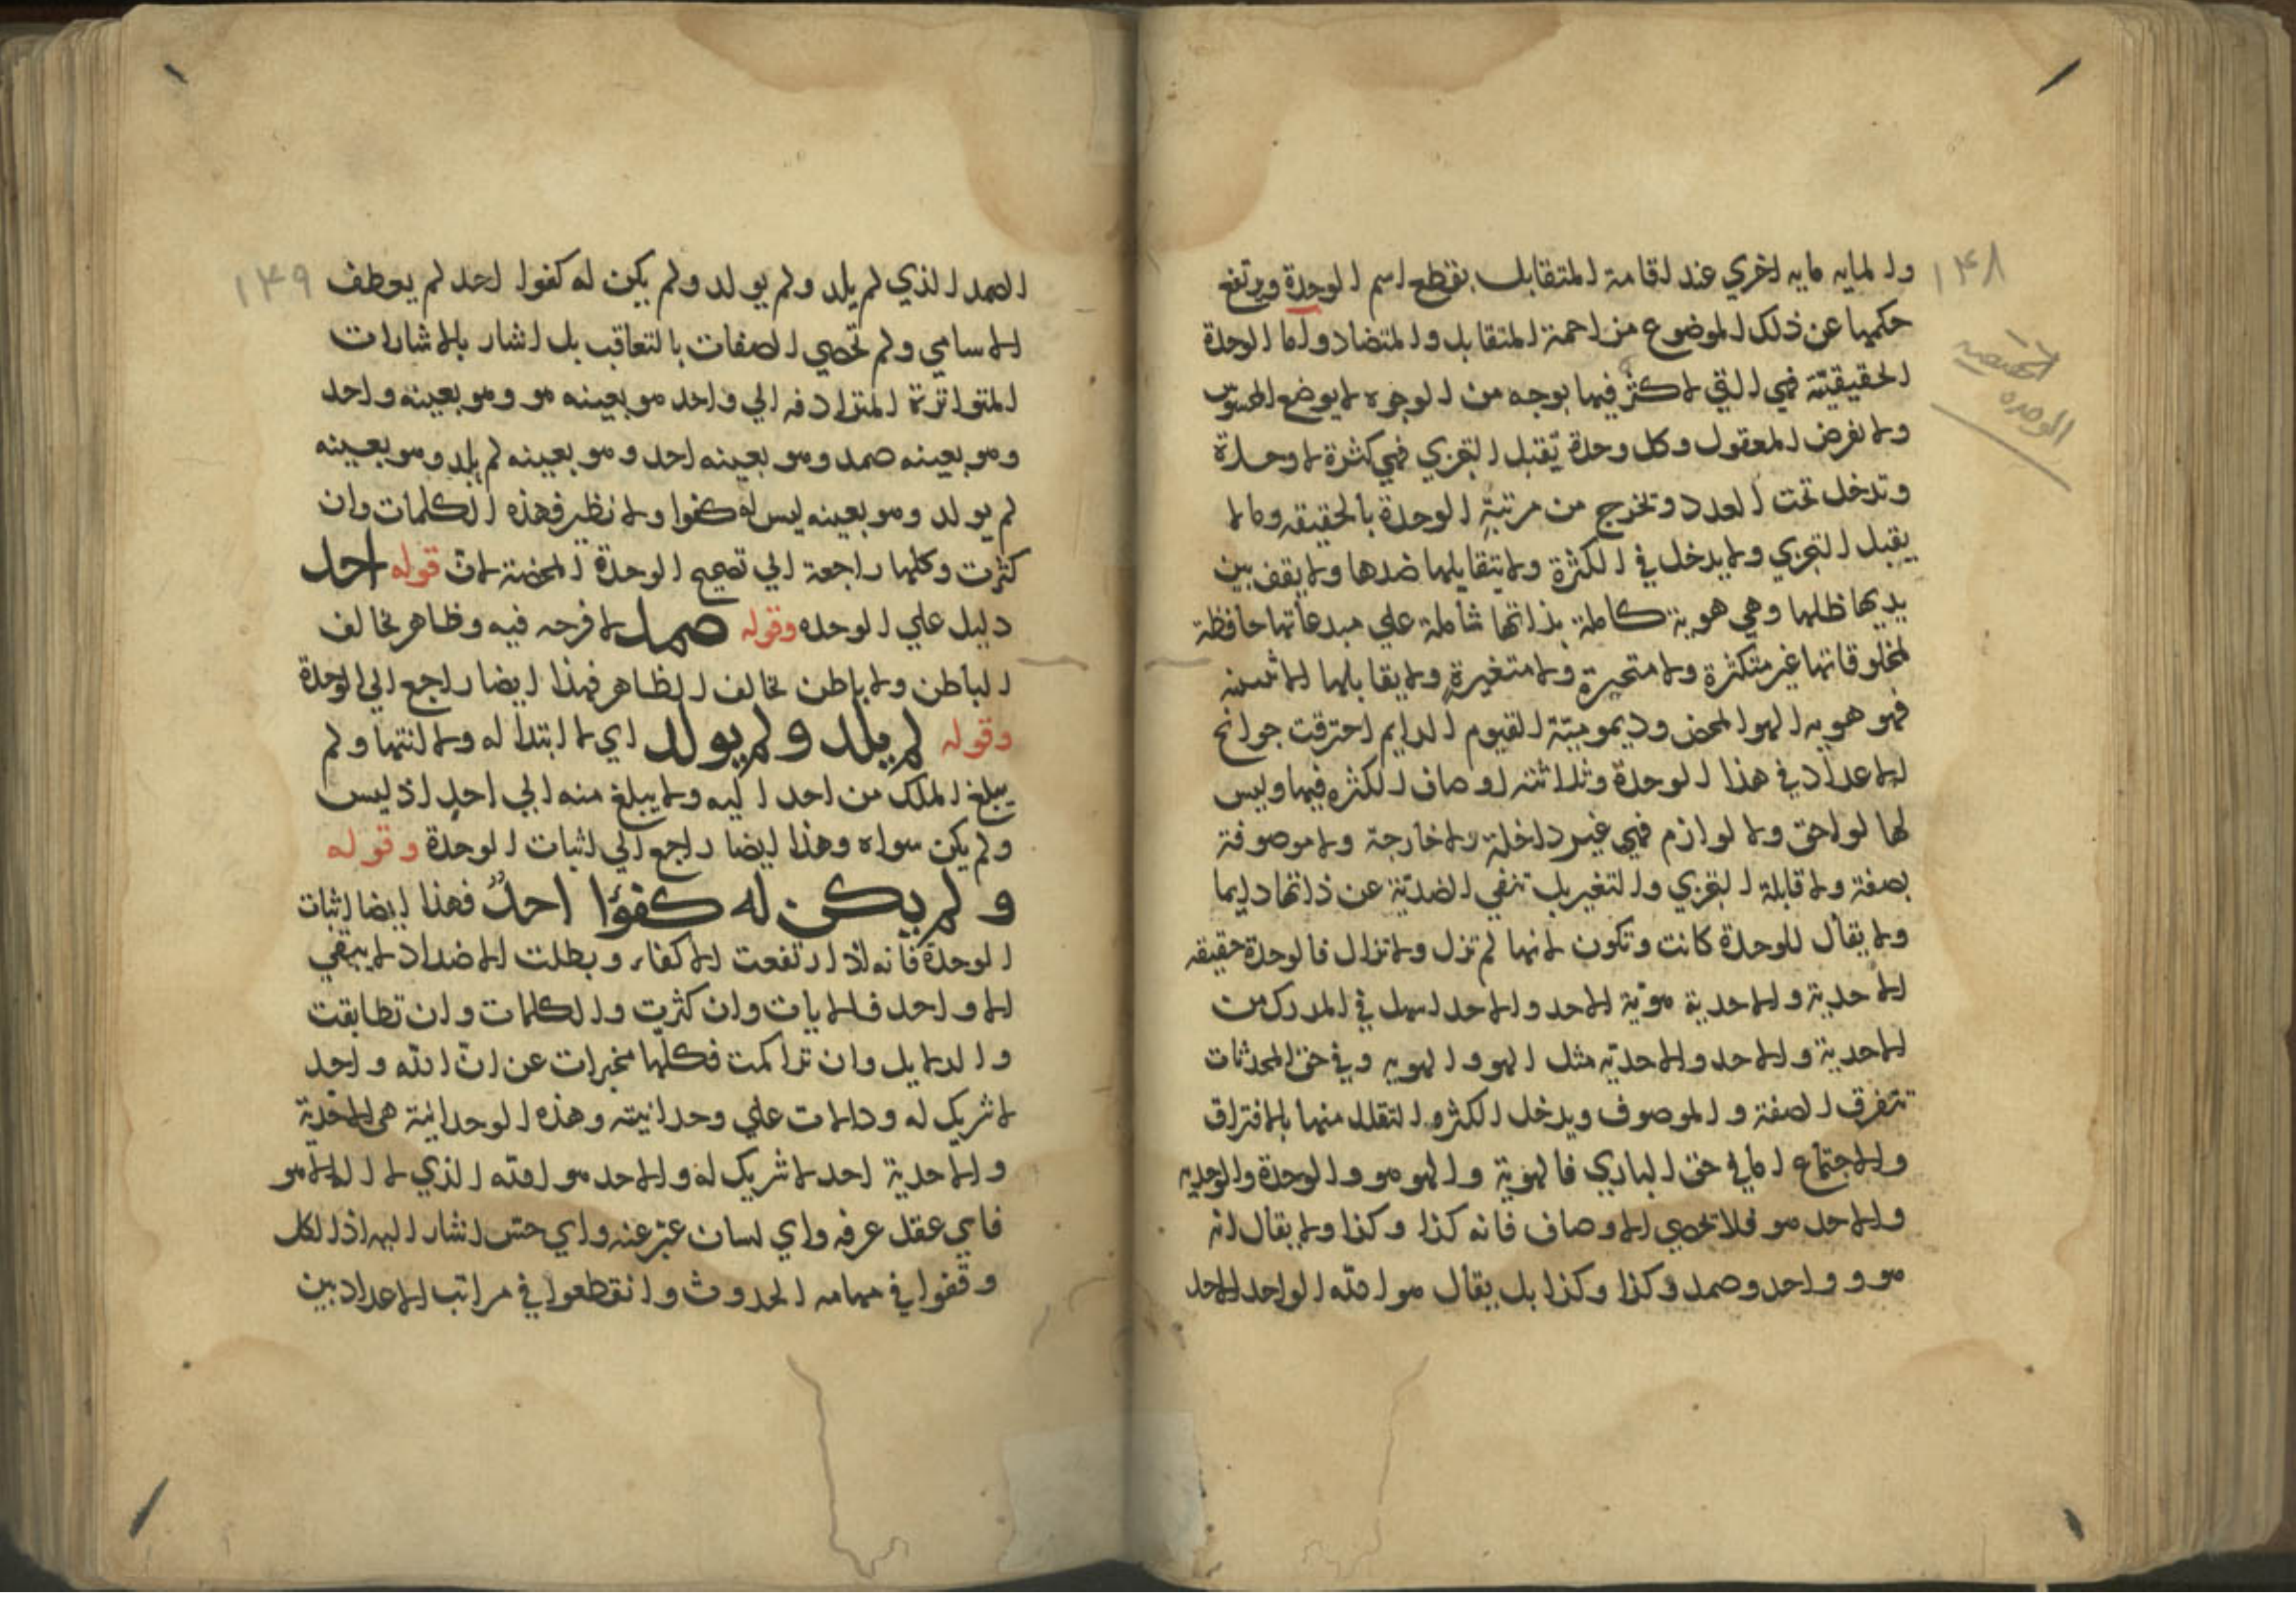 ١٤٨
والمايه مايه اخري عند اقامة المتقابل بقطع اسم الوحدة ويرتفع
حكمها عن ذلك الموضوع من احمة المتقابل والمتضاد واما الوحدة
الحقيقيّة فهي التي لا كثر فيها بوجه من الوجوه لا بوضع المحسوس
ولا بفرض المعقول وكل وحدة تقبل التجزي فهي كثرة لا وحدة
وتدخل تحت العدد وتخرج من مرتبة الوحدة بالحقيقه وما لا
يقبل التجزي ولا يدخل في الكثرة ولا يتقابلها ضدها ولا يقف بين
يديها ظلها وهي هوية كاملة بذاتها شاملة علي مبدعاتها حافظة
لمخلوقاتها غير متكثرة ولا متحيرة ولا متغيرة ولا يقابلها الاثنينيه
فهو هويه الهو المحض وديموميّة القيوم الدايم احترقت جوانح
الاعداد في هذا الوحدة وتلاشت اوصاف الكثره فيها وليس
لها لواحق ولا لوازم فهي غير داخلة ولا خارجة ولا موصوفة
بصفة ولا قابلة التجزي والتغير بل تنفي الضديّة عن ذاتها دايما
ولا يقال للوحدة كانت وتكون لانها لم تزل ولا تزال فالوحدة حقيقه
الاحدية والاحدية هويّة الاحد والاحد اسهل في المدرك من
الاحدية والاحد والاحديّه مثل الهو والهويه وفي حق المحدثات
تتفرق الصفة والموصوف ويدخل الكثره التقلل منها بالافتراق
والاجتماع اما في حق الباري فالهويّة والهو هو والوحدة والوحديه
والاحد هو فلا تحصي الاوصاف فانه كذا وكذا ولا يقال انه
هو و واحد وصمد وكذا وكذا بل يقال هو الله الواحد الاحد
الوحده
١٤٩
الصمد الذي لم يلد ولم يولد ولم يكن له كفوا احد لم يعطف
الاسامي ولم تحصي الصفات بالتعاقب بل اشار بالاشارات
المتواترة المترادفه الي واحد هو بعينه هو وهو بعينه واحد
وهو بعينه صمد وهو بعينه احد وهو بعينه لم يلد وهو بعينه
لم يولد وهو بعينه ليس له كفوا ولا نظير فهذه الكلمات وان
كثرت وكلها راجعة الي تصحيح الوحدة المحضة لان قوله احد
دليل علي الوحده وقوله صمد لا فرجه فيه وظاهر تخالف
الباطن ولا باطن تخالف الظاهر فهذا ايضا راجع الي الوحدة
وقوله لم يلد ولم يولد اي لا ابتدا له ولا انتها ولم
يبلغ الملك من احد اليه ولا يبلغ منه الي احد اذ ليس
ولم يكن سواه وهذا ايضا راجع الي اثبات الوحدة وقوله
ولم يكن له كفؤا احدٌ فهذا ايضا اثبات
الوحدة فانه اذا ارتفعت الاكفاء وبطلت الاضداد لا يبقي
الا واحد فالايات وان كثرت والكلمات وان تطابقت
والدلايل وان تراكمت فكلّها مخبرات عن انّ الله واحد
لا شريك له ودالات علي وحدانيته وهذه الوحدانية هي الاحدية
والاحدية احد لا شريك له والاحد هو الله الذي لا اله الا هو
فاي عقل عرفه واي لسان عبّر عنه واي حسّ اشار اليه اذ الكل
وقفوا في مهامه الحدوث وانقطعوا في مراتب الاعداد بين